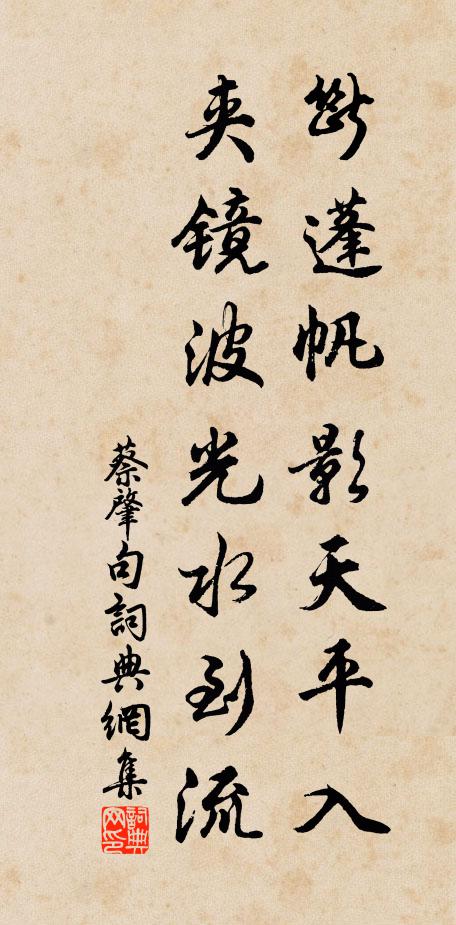 斷蓬帆影天平入
夾鏡波光水到流
蔡肇句詞典網集
詞典网印